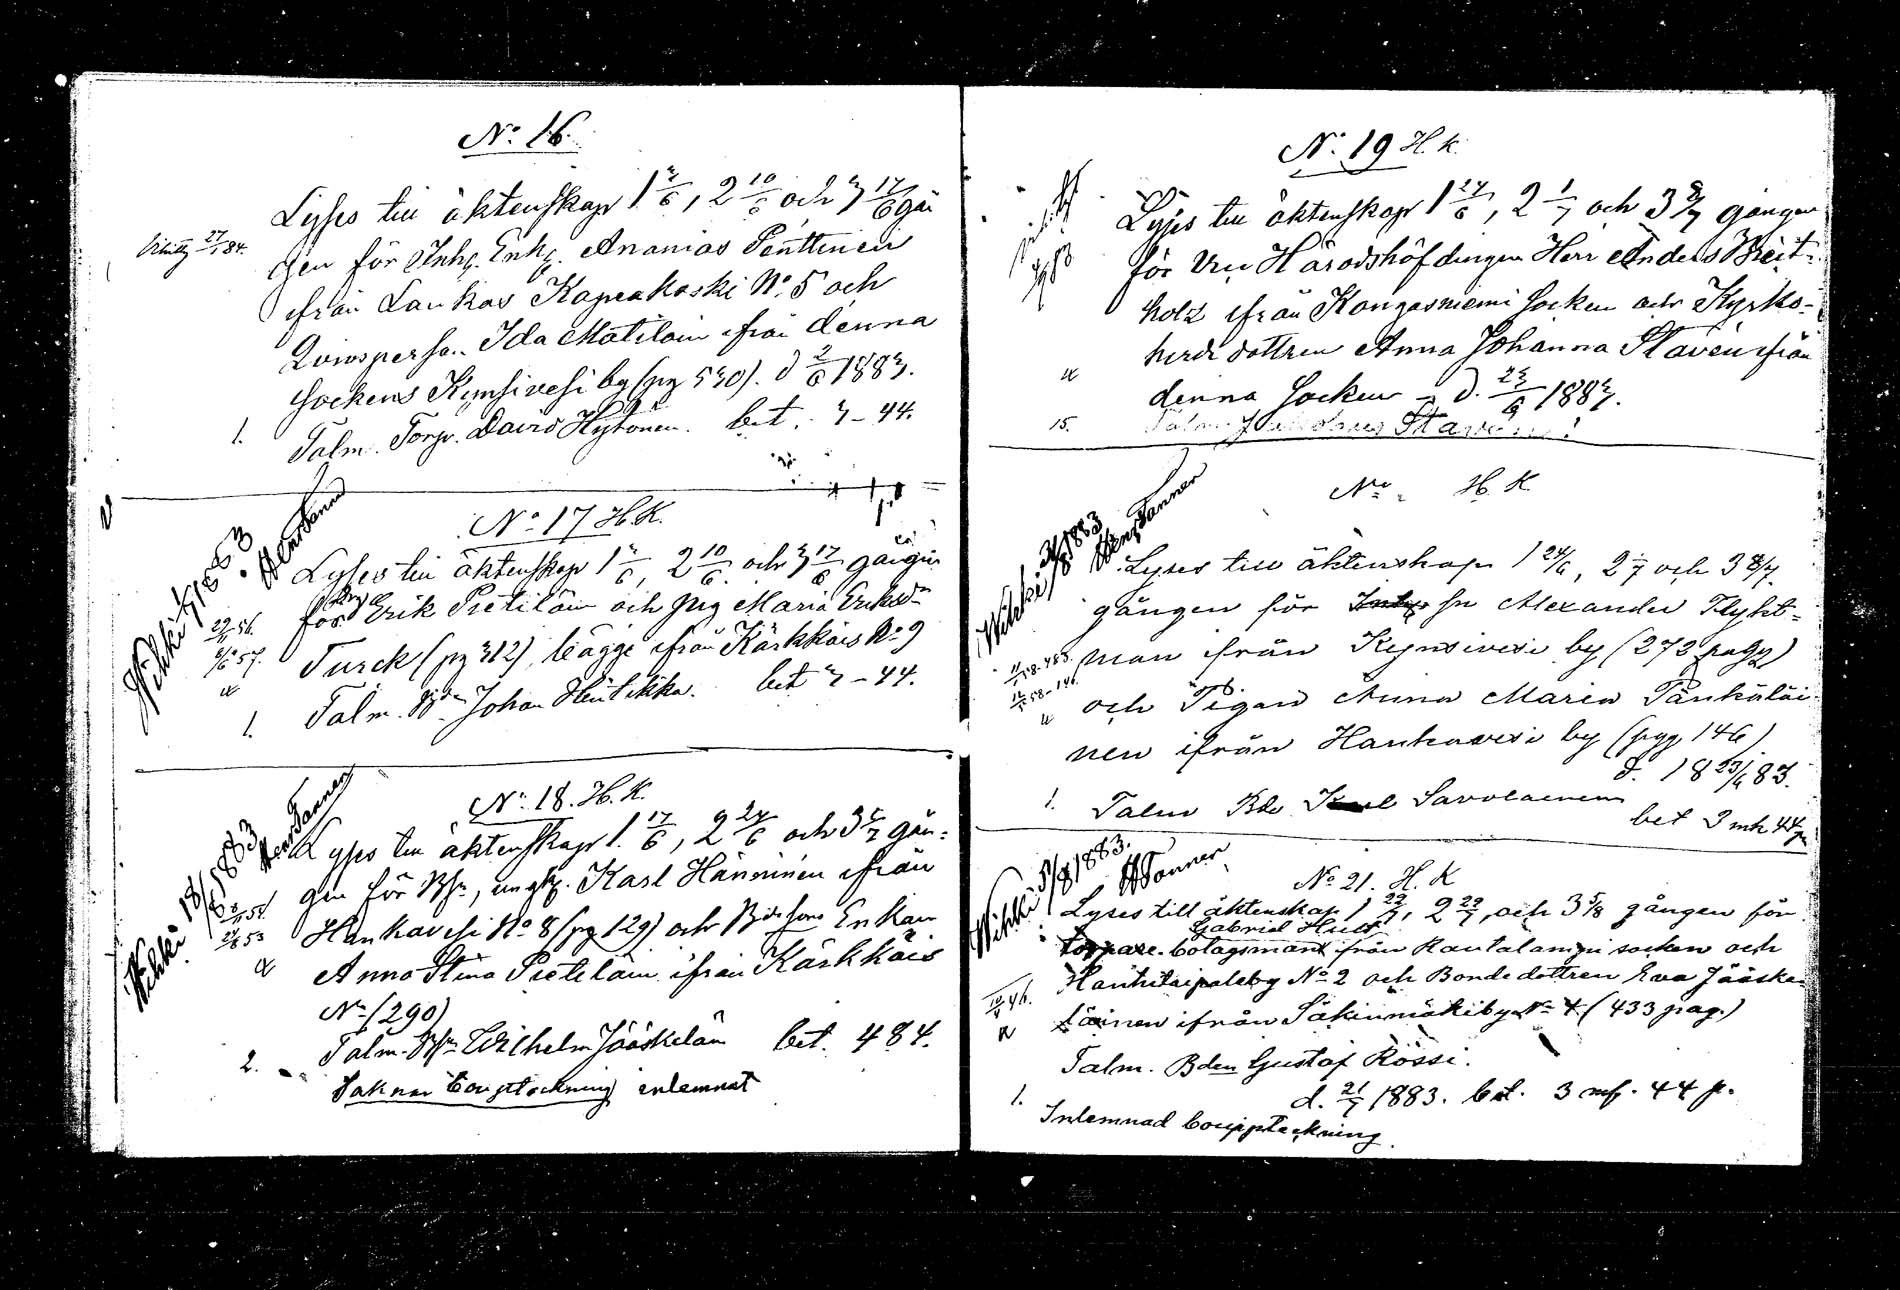 No 16.
Lyses till äktenskap 1 3/6, 2 10/6 och 3 17/6 gån
gen för Inhg. Enkg. Ananias Penttinen
27/1 84.
ifrån Laukas Kapeakoski No 5 och
Qvinsperson Ida Matilain ifrån denna
sockens Kynsivesi by (pg 530). d 2/6 1883.
1. Talm. Torp. David Hytönen. bet. 3-44.
No 17 H.K.
Wihki 1/7 1883 Henr Tannen
Lyses till äktenskap 1 3/6, 2 10/6 och 3 17/6 gången
för Erik Pietiläin och pig Maria Eriksdr
29/11 56.
8/6 57.
Turck (pg 312), bägge ifrån Kärkkäis No 9
1. Talm. Johan Hintikka. bet 3-44.
No 18. H.K.
Wihki 18/8 1883 Henr Tannen
Lyses till äktenskap 1. 17/6, 2 24/6 och 3 5/7 gån=
gen för Bsn, ungk. Karl Hänninen ifrån
Hankavesi No 8 (pg 129) och Enkan
Anna Stina Pietiläin ifrån Kärkkäis
No (290)
2. Talm. Bsn Wilhelm Jääskeläin bet. 4 84.
Saknar boupteckning inlemnat
No 19 H.K.
Lyses till äktenskap 1 24/6, 2 1/7 och 3 8/7 gången
för Vice Häradshöfdingen Herr Anders Breit=
holz ifrån Kangasniemi Socken och Kyrko-
herde dottren Anna Johanna Stavén ifrån
denna Socken - d. 23/6 1883.
15. Talm. Stavén
No H.K.
Wihki 1883 Henr Tannen
Lyses till äktenskap 1 24/6, 2 1/7 och 3 8/7.
gången för Sn Alexander Flykt=
man ifrån Kynsivesi by (272 pag)
och Pigan Anna Maria Pänkäläi-
nen ifrån Hankavesi by (pag 146)
d. 18 23/6 83.
1. Talm Bdn Savolainen
bet 3 mk 44 p
No 21. H.K
Wihki 5/8 1883. H Tannen
Lyses till äktenskap 1 22/7, 2 29/7, och 3 5/8 gången för
Gabriel Hult
torpare. bolagsman från Rautalampi socken och
Hankitaipaleby No 2 och Bonde dottren Eva Jääske-
läinen ifrån Säkinmäki by No 4 (433 pag.)
Talm. Bden Gustaf Rossi.
d. 21/7 1883. bet. 3 mk. 44 p.
1. Inlemnad bouppteckning.